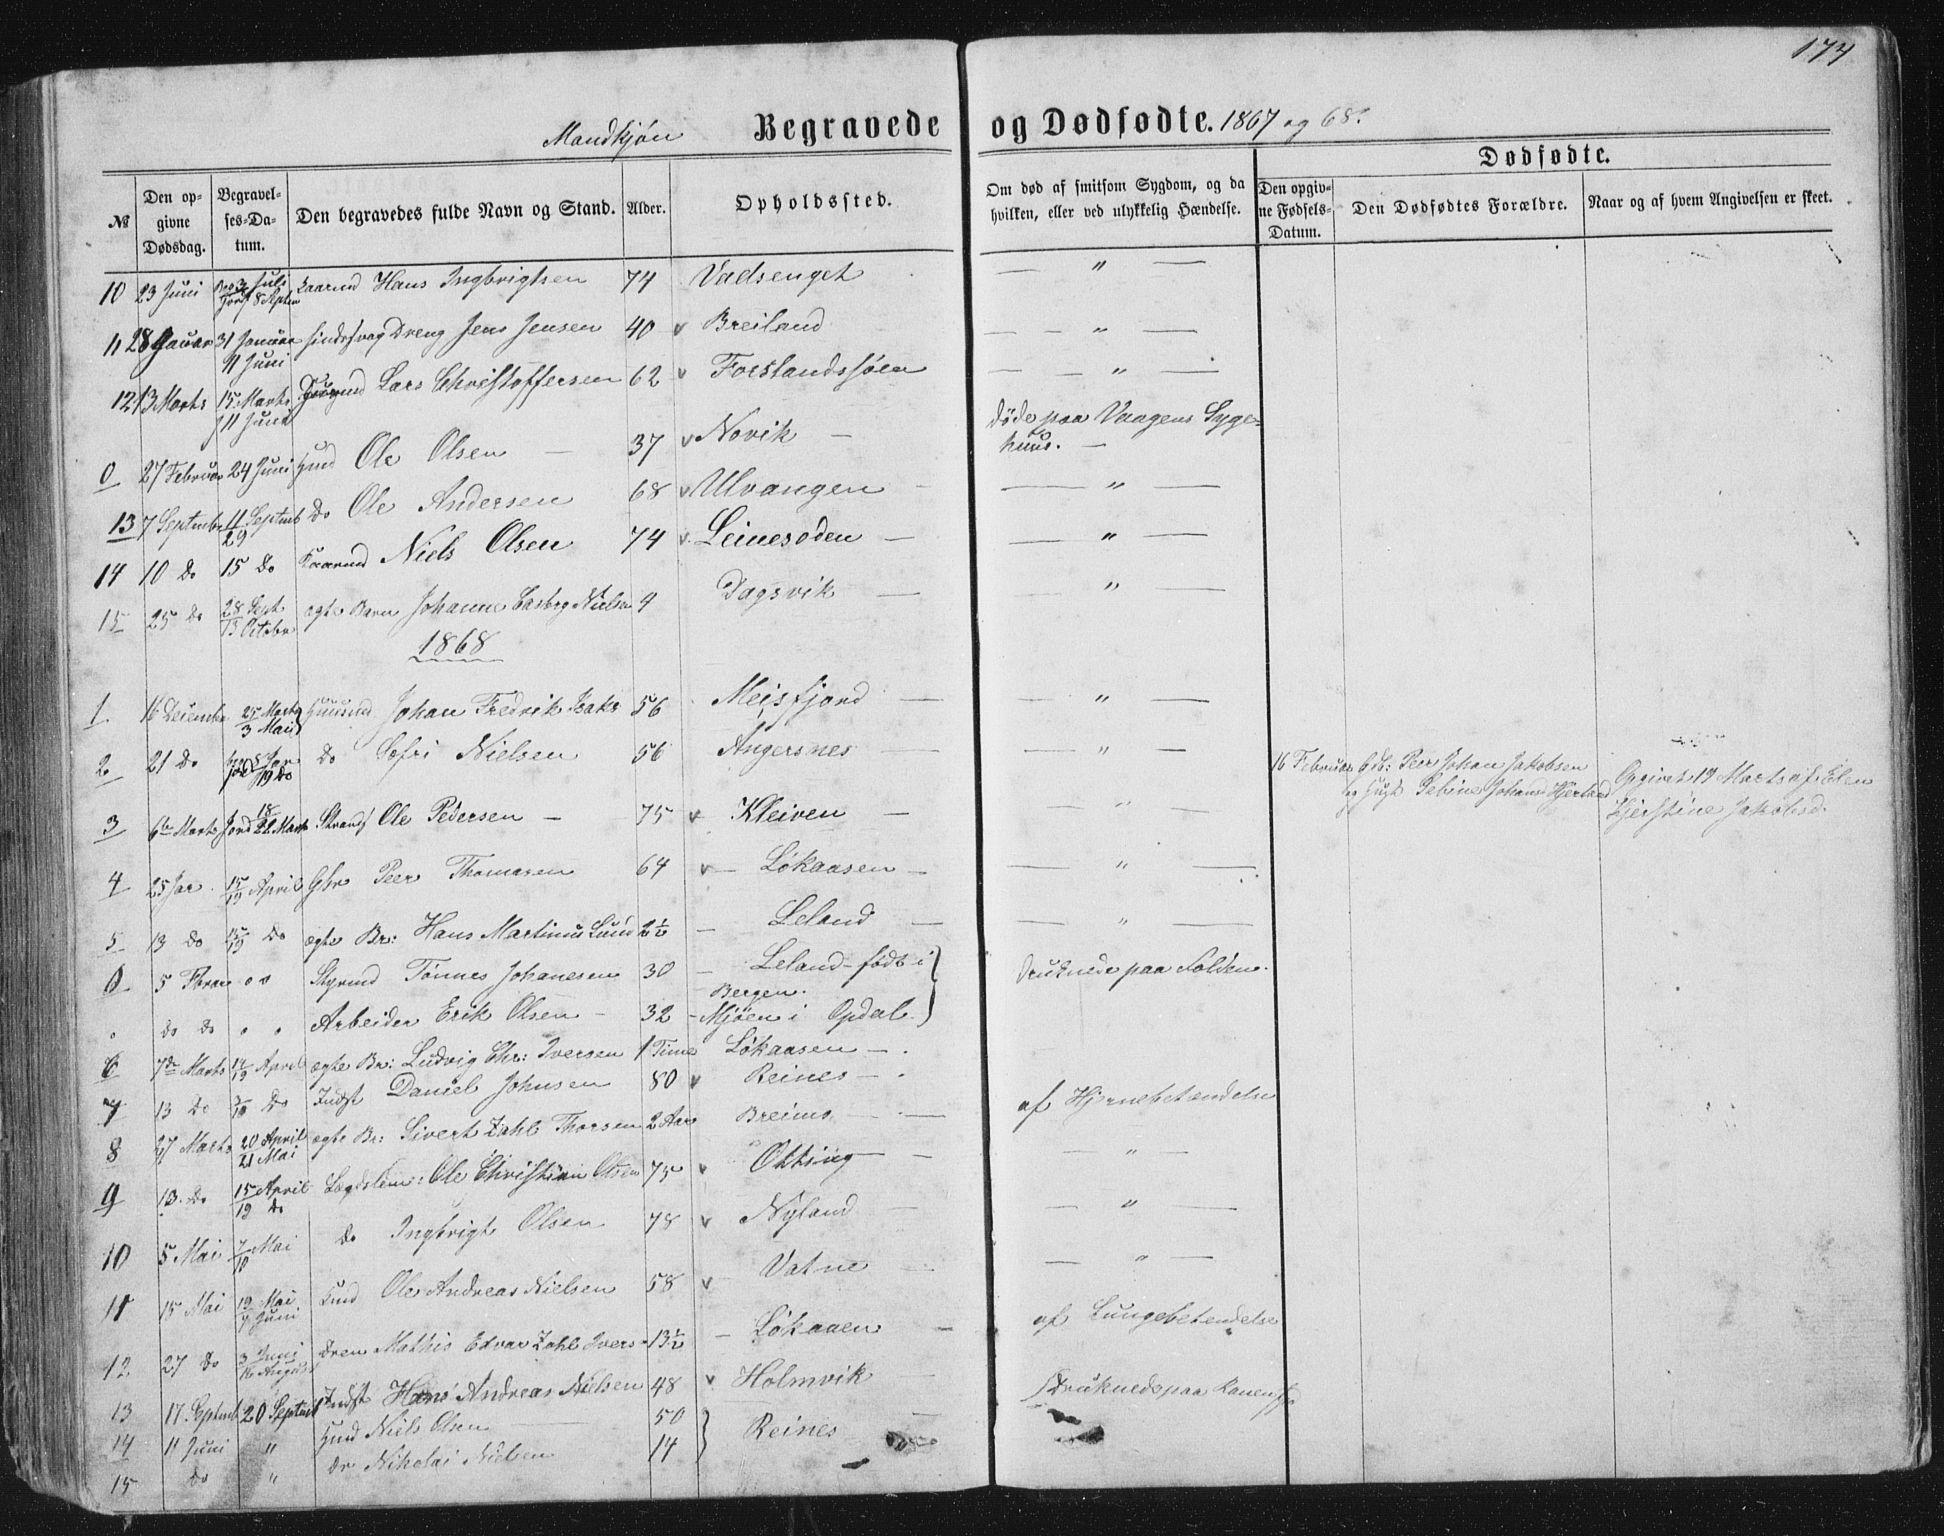 174
Mandkjøn Begravede og Dødfødte. 1867 og 68.
№ Den opgivne Dødsdag. Begravelses-Datum. Den begravedes fulde Navn og Stand. Alder. Opholdssted. Om død af smitsom Sygdom, og da hvilken, eller ved ulykkelig Hændelse.
Dødfødte.
Den opgivne Fødsels-Datum. Den Dødfødtes Forældre. Naar og af hvem Angivelsen er skeet.
10 23 Juni Juli Hans Ingbrigtsen 74 Vadsenget — " —
11 28 Januar 31 Januar 11 Juni sindssvag Dreng Jens Jensen 40 v Breiland — " —
12 13 Marts 15 Marts 11 Juni Lars Christoffersen 62 v Forslandssøen — " —
0 27 Februar 24 Juni Hmd Ole Olsen — 37 v Novik — døde paa Vaagens Sygehuus. —
13 7 Septembr 11 Septemb 29 Do Ole Andersen 68 v Ulvangen — " —
14 10 Do 15 Do Kaarmd Niels Olsen 74 v Leinesoden — — " —
15 25 Do 28 Sept 13 Octobr ægte Barn Johanne Nielsen 4 Dagsvik — " —
1868
1 16 Decembr 25 Marts 3 Mai Huusmd Johan Fredrik Isaks 56 Meisfjord — — " —
2 21 Do Do Sefri Nielsen 56 Angersnes — — " —
16 Februar Gdb: Peer Johan Jakobsen og Hust Pebine Johans Hjerland Opgivet 19 Marts af Elen Kjerstine Jakobsd.
3 6te Marts Jord 18/22 Marts Strands Ole Pedersen — 75 v Kleiven — — " —
4 25 Jar 15/19 April Gbr Peer Thomasen 64 v — Løkaasen — — " —
5 13 Do 15/19 Do ægte Br: Hans Martinus Lund 2½ — Leland — — " —
0 5 Fbrar o o Styrmd Tønnes Johanesen 30 — Leland — født i Bergen. Druknede paa Folden.
" do do " " Arbeider Erik Olsen — 32 — Mjøen i Opdal.
6 7de Marts 14/19 April ægte Br: Ludvig Chr: Iversen 1 Time Løkaasen — .
7 13 Do Do Indst Daniel Johnsen 80 v Reines — .
8 27 Marts 20 April 21 Mai ægte Br: Sivert Zahl Thorsen 2 Aar Breims — af Hjernebetændelse
9 13 Do 15 April 19 Do Lægdslem: Ole Christian Olsen 75 v Okting — — " —
10 5 Mai 7/10 Mai do Ingbrigt Olsen 78 v Nyland — — " —
11 15 Mai 19 Mai 7 Juni Kmd Ole Andreas Nielsen 58 v Vatne — — " —
12 27 Do 3 Juni 16 August Dren Mathis Edvar Zahl Ivers 13½ — Løkaaen — af Lungebetendelse
13 17 Septemb 20 Septemb Indst Hans Andreas Nielsen 48 v Holmvik —
14 11 Juni " Hmd Niels Olsen 50 Reines Druknede paa
15 do " Dr Nikolai Nielsen 14